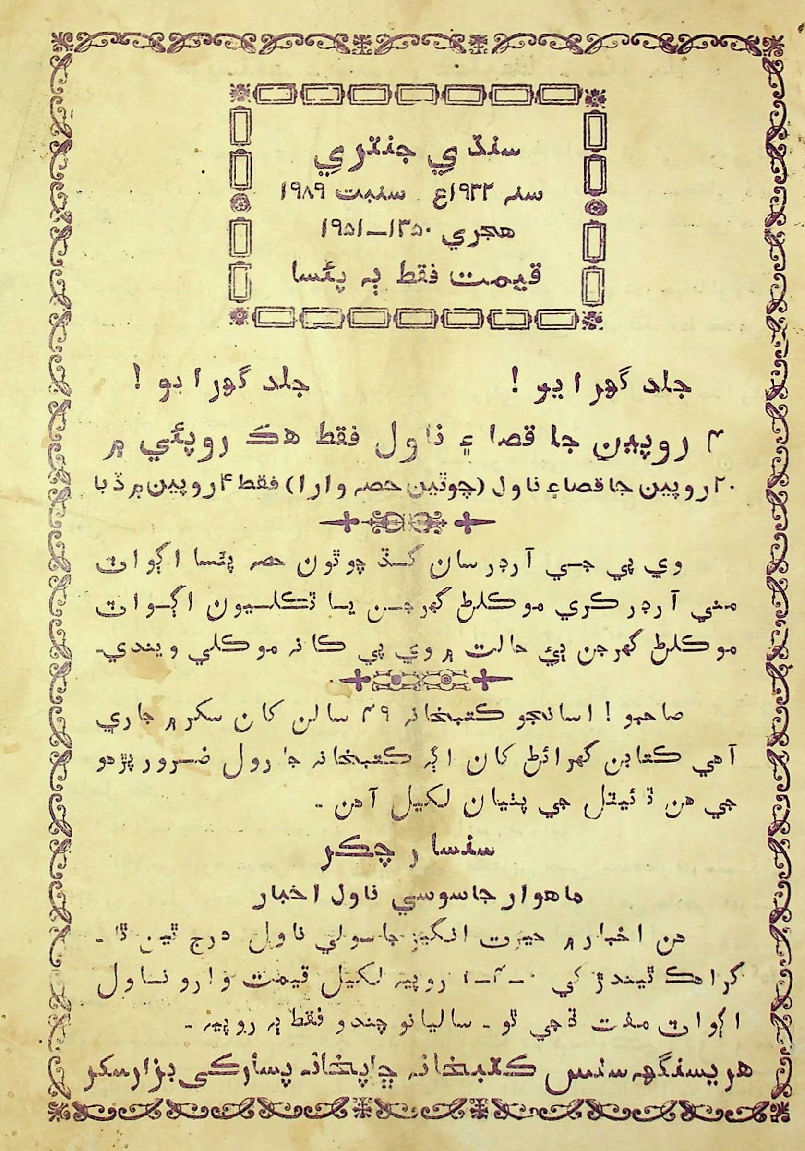 سنڌي جنتري
سنه ۱۹۳۲ع سنبت ۱۹۸۹
هجري ۱۳۵۰—۱۹۵۱
قيمت فقط ٻه پئسا
جلد گهرايو ! جلد گهرايو !
۴ روپين جا قصا ۽ ناول فقط هڪ روپئي ۾
۲۰ روپين جا قصا ۽ ناول (چوٿين حصه وارا) فقط ۴ روپين ۾ ڏبا
وي پي جي آرڊر سان گڏ چوٿون حصه پئسا اڳواٽ
مني آرڊر ڪري موڪلڻ گهرجن يا ٽڪليون اڳواٽ
موڪلڻ گهرجن ٻيءَ حالت ۾ وي پي ڪانه موڪلي ويندي.
صاحبو ! اسانجو ڪتبخانه ۴۹ سالن کان سکر ۾ جاري
آهي ڪتابن گهرائڻ کان اڳه ڪتبخانه جا رول ضرور پڙهو
جي هن ٽائيٽل جي پٺيان لکيل آهن -
سنسار چڪر
ماهوار جاسوسي ناول اخبار
هن اخبار ۾ حيرت انگيز جاسوسي ناول درج ٿين ٿا -
گراهڪ ٿيندڙ کي روپيه لکيل قيمت وارو ناول
اڳواٽ مفت ڏجي ٿو - ساليانو چندو فقط ٻه روپيه -
هريسنگهه سنس ڪتبخانه ڇاپخانه پسارڪي بزار سکر